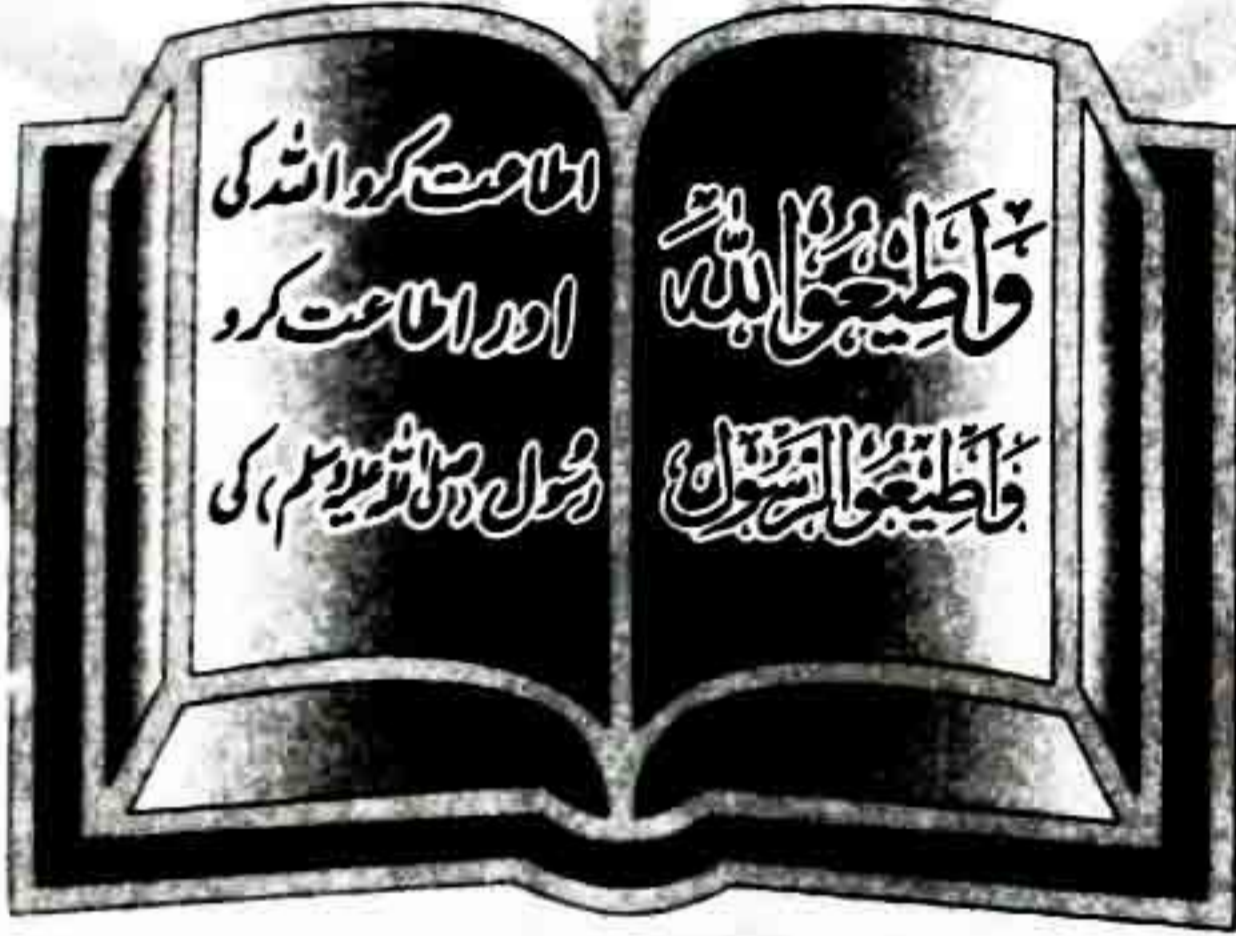 وَأَطِيعُوا اللّٰهَ
وَأَطِيعُوا الرَّسُوْلَ
اطاعت کرو اللہ کی
اور اطاعت کرو
رسُول (صلی اللہ علیہ وسلم) کی